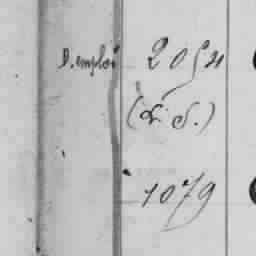 D. emploi 2054
(L. S.)
1079